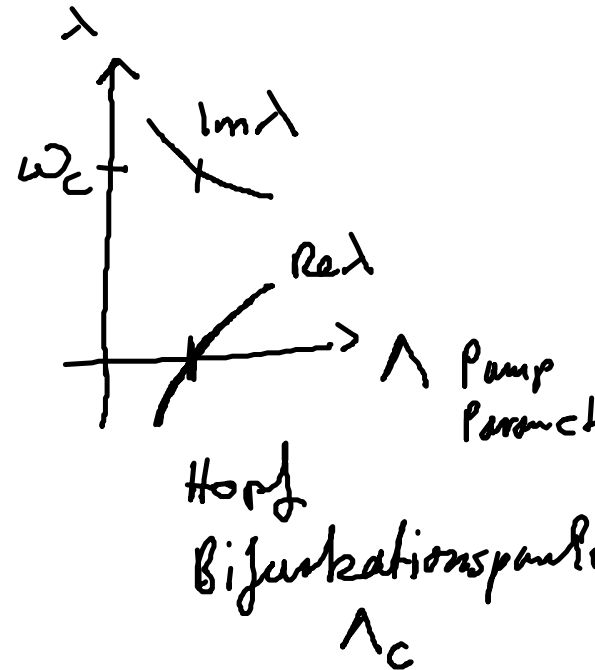 λ
Imλ
ωc
Reλ
Λ Pump
Paramet
Hopf
Bifurkationspunk
Λc